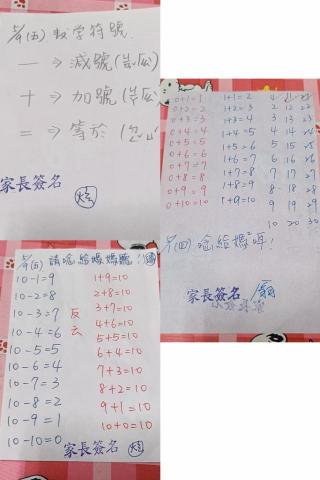 (五) 數學符號
— ⇒ 減號
+ ⇒ 加號
= ⇒ 等於
家長簽名
0+1=1 1+1=2
0+2=2 1+2=3 2 12 22
0+3=3 1+3=4 3 13 23
0+4=4 1+4=5 4 14 24
0+5=5 1+5=6 5 15 25
0+6=6 1+6=7 6 16 26
0+7=7 1+7=8 7 17 27
0+8=8 1+8=9 8 18 28
0+9=9 1+9=10 9 19 29
0+10=10 10 20 30
(四) 唸給媽
家長簽名
(五) 請唸給媽媽聽!
10-1=9 1+9=10
10-2=8 2+8=10
10-3=7 反 3+7=10
10-4=6 4+6=10
10-5=5 5+5=10
10-6=4 6+4=10
10-7=3 7+3=10
10-8=2 8+2=10
10-9=1 9+1=10
10-10=0 10+0=10
家長簽名